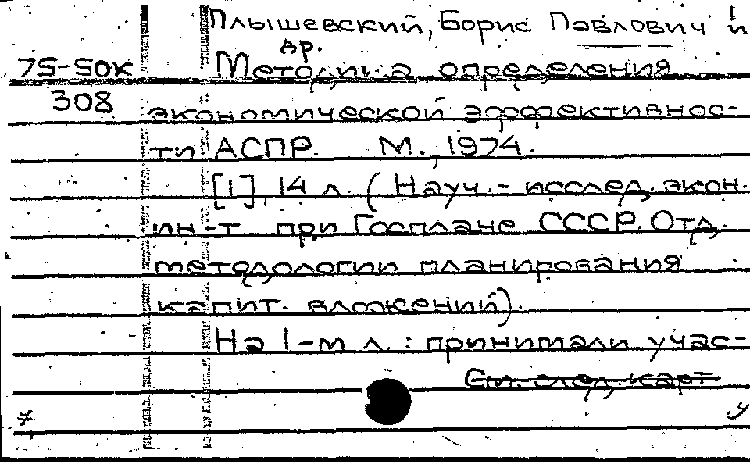 Плышевский, Борис Павлович и
др.
75-50к Методика определения
308 экономической эффективнос-
ти АСПР. М., 1974.
[1], 14 л. (Науч.-исслед. экон.
ин-т при Госплане СССР. Отд.
методологии планирования
капит. вложений).
На 1-м л.: принимали учас-
См. след. карт